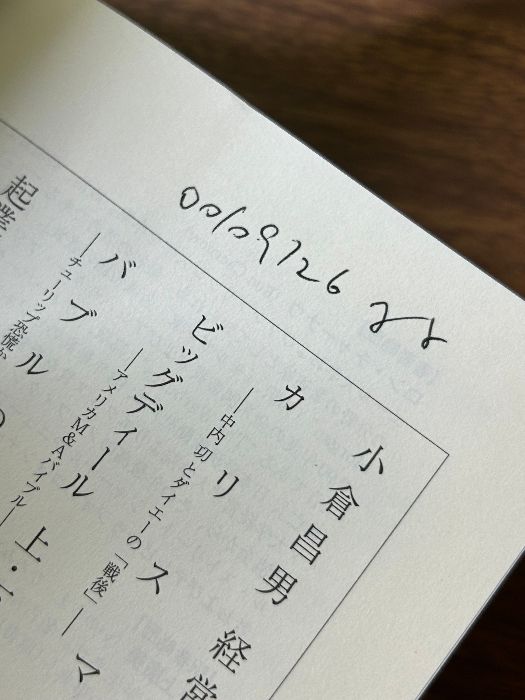 小倉昌男 経営
カリスマ
―中内功とダイエーの「戦後」―
ビッグディール 上・
―アメリカM&Aバイブル―
バブルの
―チューリップ恐慌か
起業